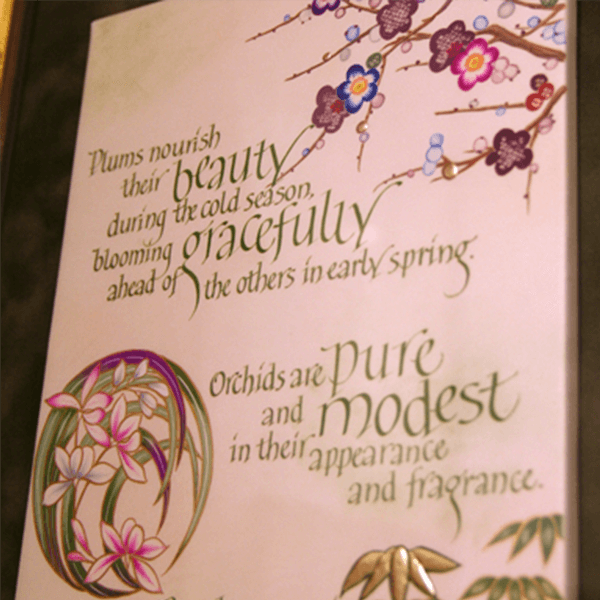 Plums nourish
their beauty
during the cold season,
blooming gracefully
ahead of the others in early spring.
Orchids are pure
and modest
in their appearance
and fragrance.